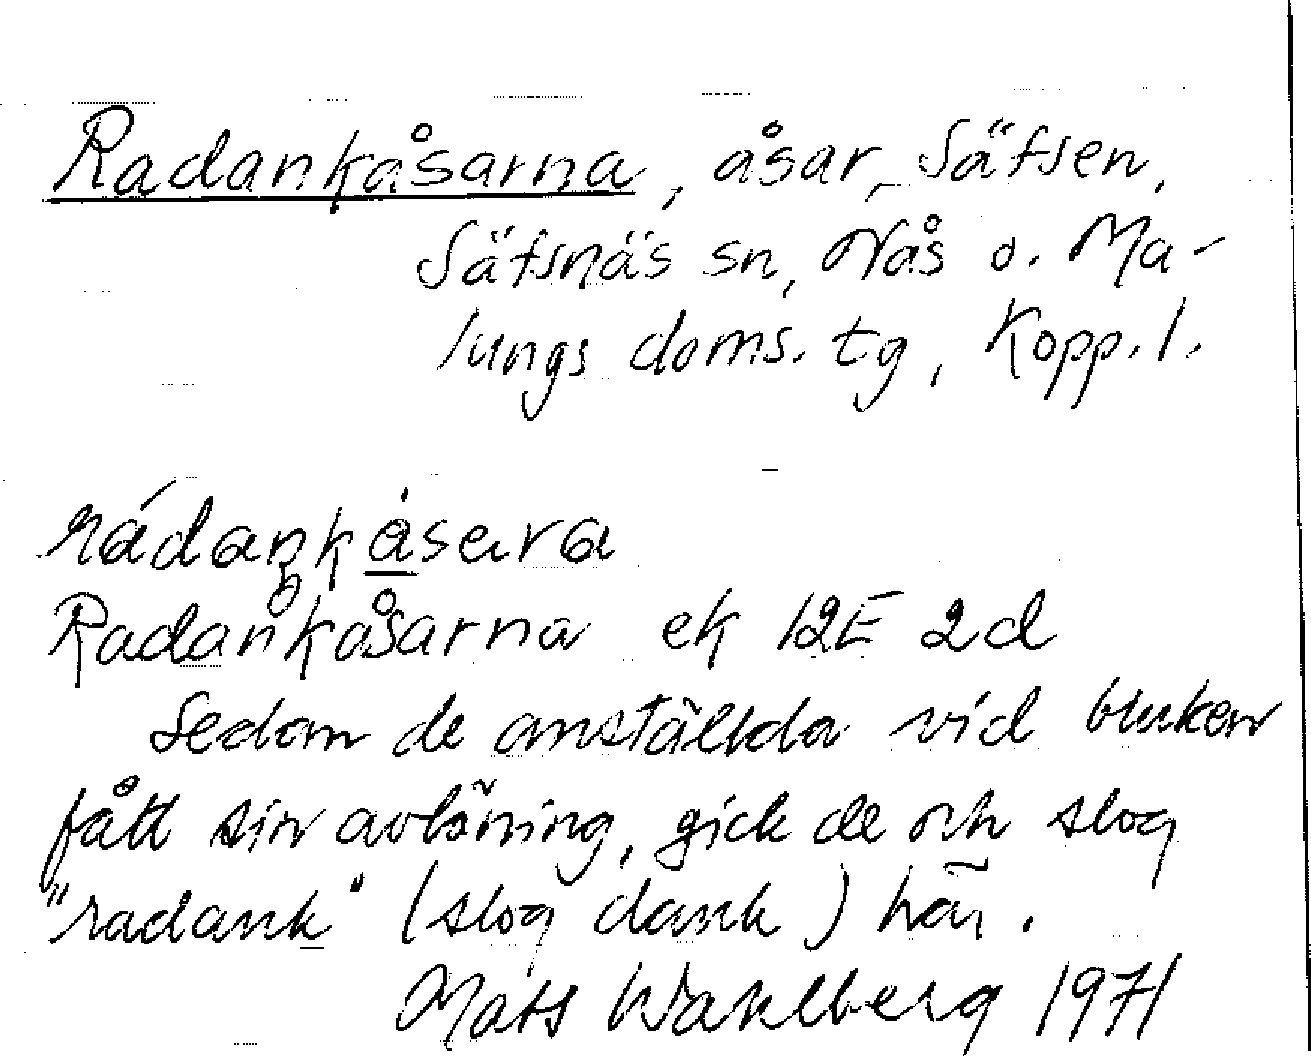 Radankåsarna, åsar, Säfsen,
Säfsnäs sn, Nås o. Ma-
lungs doms. tg, Kopp. l.
rádaŋkåsara
Radånkåsarna ek 12E 2d
Sedan de anställda vid bruken
fått sin avlöning, gick de och slog
"radank" (slog dank) här.
Mats Wahlberg 1971